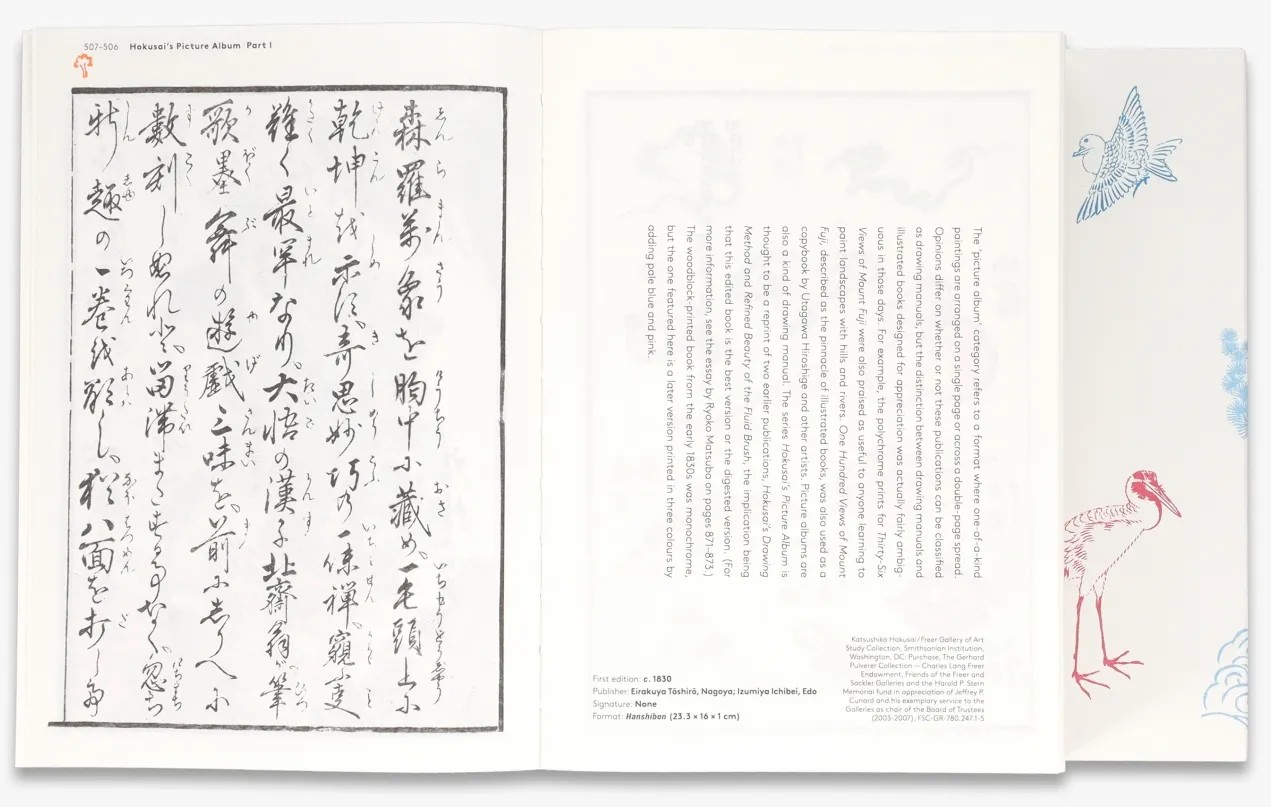 507–506 Hokusai's Picture Album Part I
森羅萬象を胸中小藏め、一毛頭上尓
乾坤越示須、思妙巧乃一禪窺
難く最罕なり。大悟の漢子北齋翁が筆
歌墨舞の遊戲三昧を、前尓志りへ尓
數刻し留滞ま多春る事なく、忽ち
新趣の一巻越顕し、猶八面を打し
The 'picture album' category refers to a format where one-of-a-kind
paintings are arranged on a single page or across a double-page spread.
Opinions differ on whether or not these publications can be classified
as drawing manuals, but the distinction between drawing manuals and
illustrated books designed for appreciation was actually fairly ambig-
uous in those days. For example, the polychrome prints for Thirty-Six
Views of Mount Fuji were also praised as useful to anyone learning to
paint landscapes with hills and rivers. One Hundred Views of Mount
Fuji, described as the pinnacle of illustrated books, was also used as a
copybook by Utagawa Hiroshige and other artists. Picture albums are
also a kind of drawing manual. The series Hokusai's Picture Album is
thought to be a reprint of two earlier publications, Hokusai's Drawing
Method and Refined Beauty of the Fluid Brush, the implication being
that this edited book is the best version or the digested version. (For
more information, see the essay by Ryoko Matsuba on pages 871–873.)
The woodblock-printed book from the early 1830s was monochrome,
but the one featured here is a later version printed in three colours by
adding pale blue and pink.
First edition: c. 1830
Publisher: Eirakuya Tōshirō, Nagoya; Izumiya Ichibei, Edo
Signature: None
Format: Hanshibon (23.3 × 16 × 1 cm)
Katsushika Hokusai/Freer Gallery of Art
Study Collection, Smithsonian Institution,
Washington, DC: Purchase, The Gerhard
Pulverer Collection — Charles Lang Freer
Endowment, Friends of the Freer and
Sackler Galleries and the Harold P. Stern
Memorial fund in appreciation of Jeffrey P.
Cunard and his exemplary service to the
Galleries as chair of the Board of Trustees
(2003–2007), FSC-GR-780.247.1-5